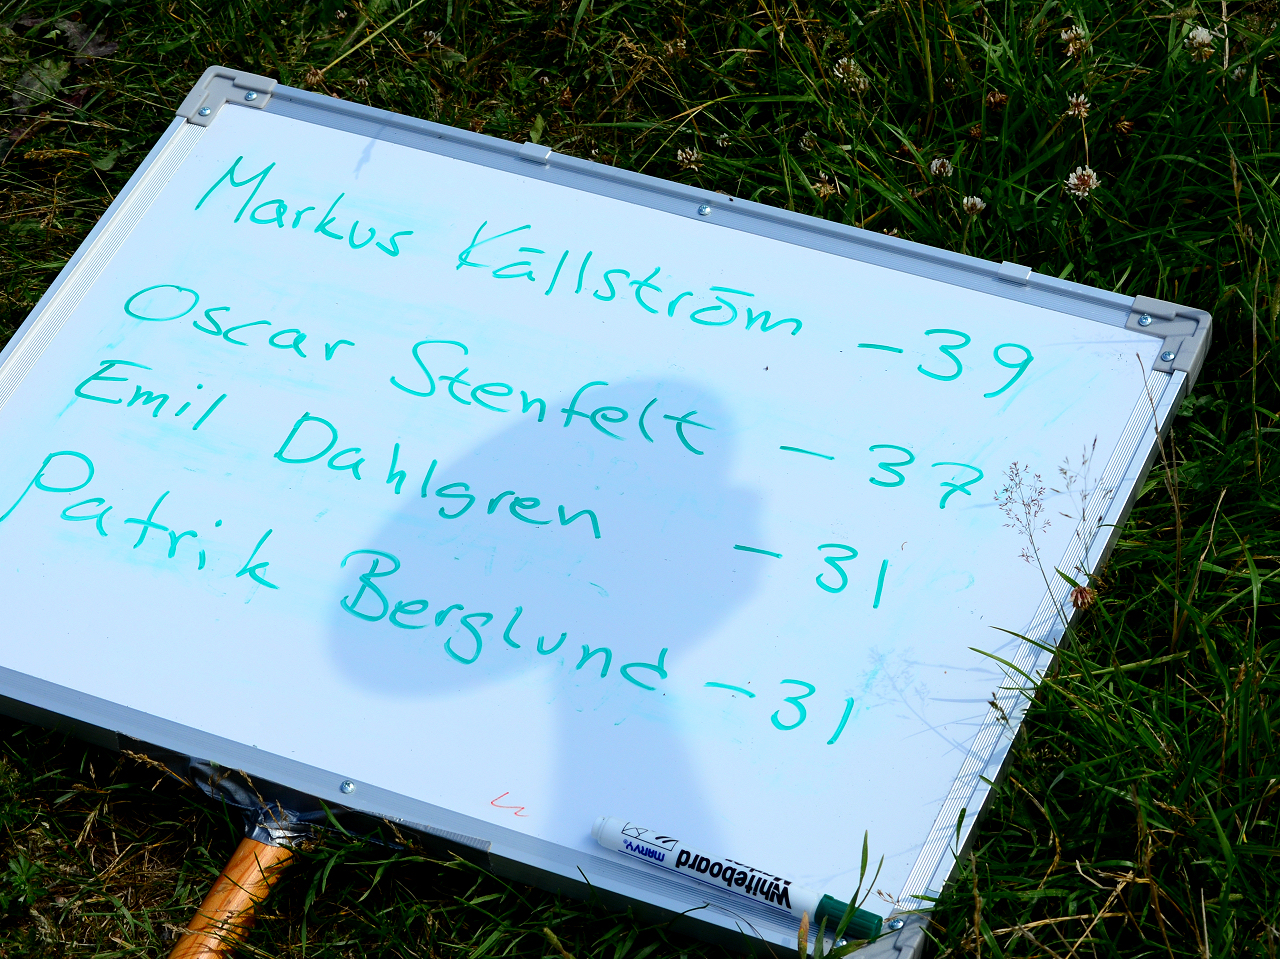 Markus Källström -39
Oscar Stenfelt -37
Emil Dahlgren -31
Patrik Berglund -31
MARVY
Whiteboard